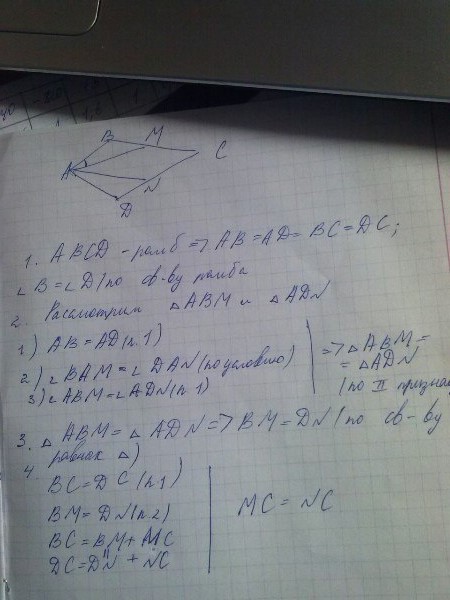 B M
A C
N
D
1. ABCD - ромб => AB = AD = BC = DC;
∠B = ∠D (по св-ву ромба
2. Рассмотрим △ABM и △ADN
1) AB = AD (п. 1)
2) ∠BAM = ∠DAN (по условию)
3) ∠ABM = ∠ADN (п 1)
=> △ABM =
= △ADN
(по II признак
3. △ABM = △ADN => BM = DN (по св-ву
равных △)
4
BC = DC (п1)
BM = DN (п2)
BC = BM + MC
DC = DN + NC
MC = NC